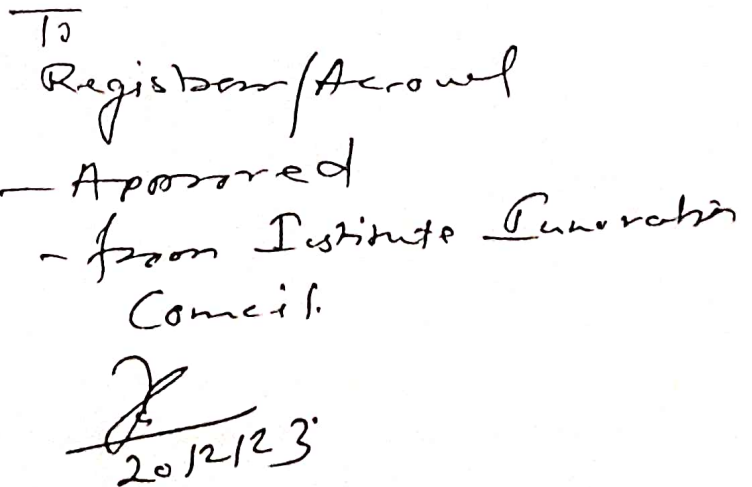 To
Registrar/Account
- Approved
- from Institute Innovation
Council.
20/12/23